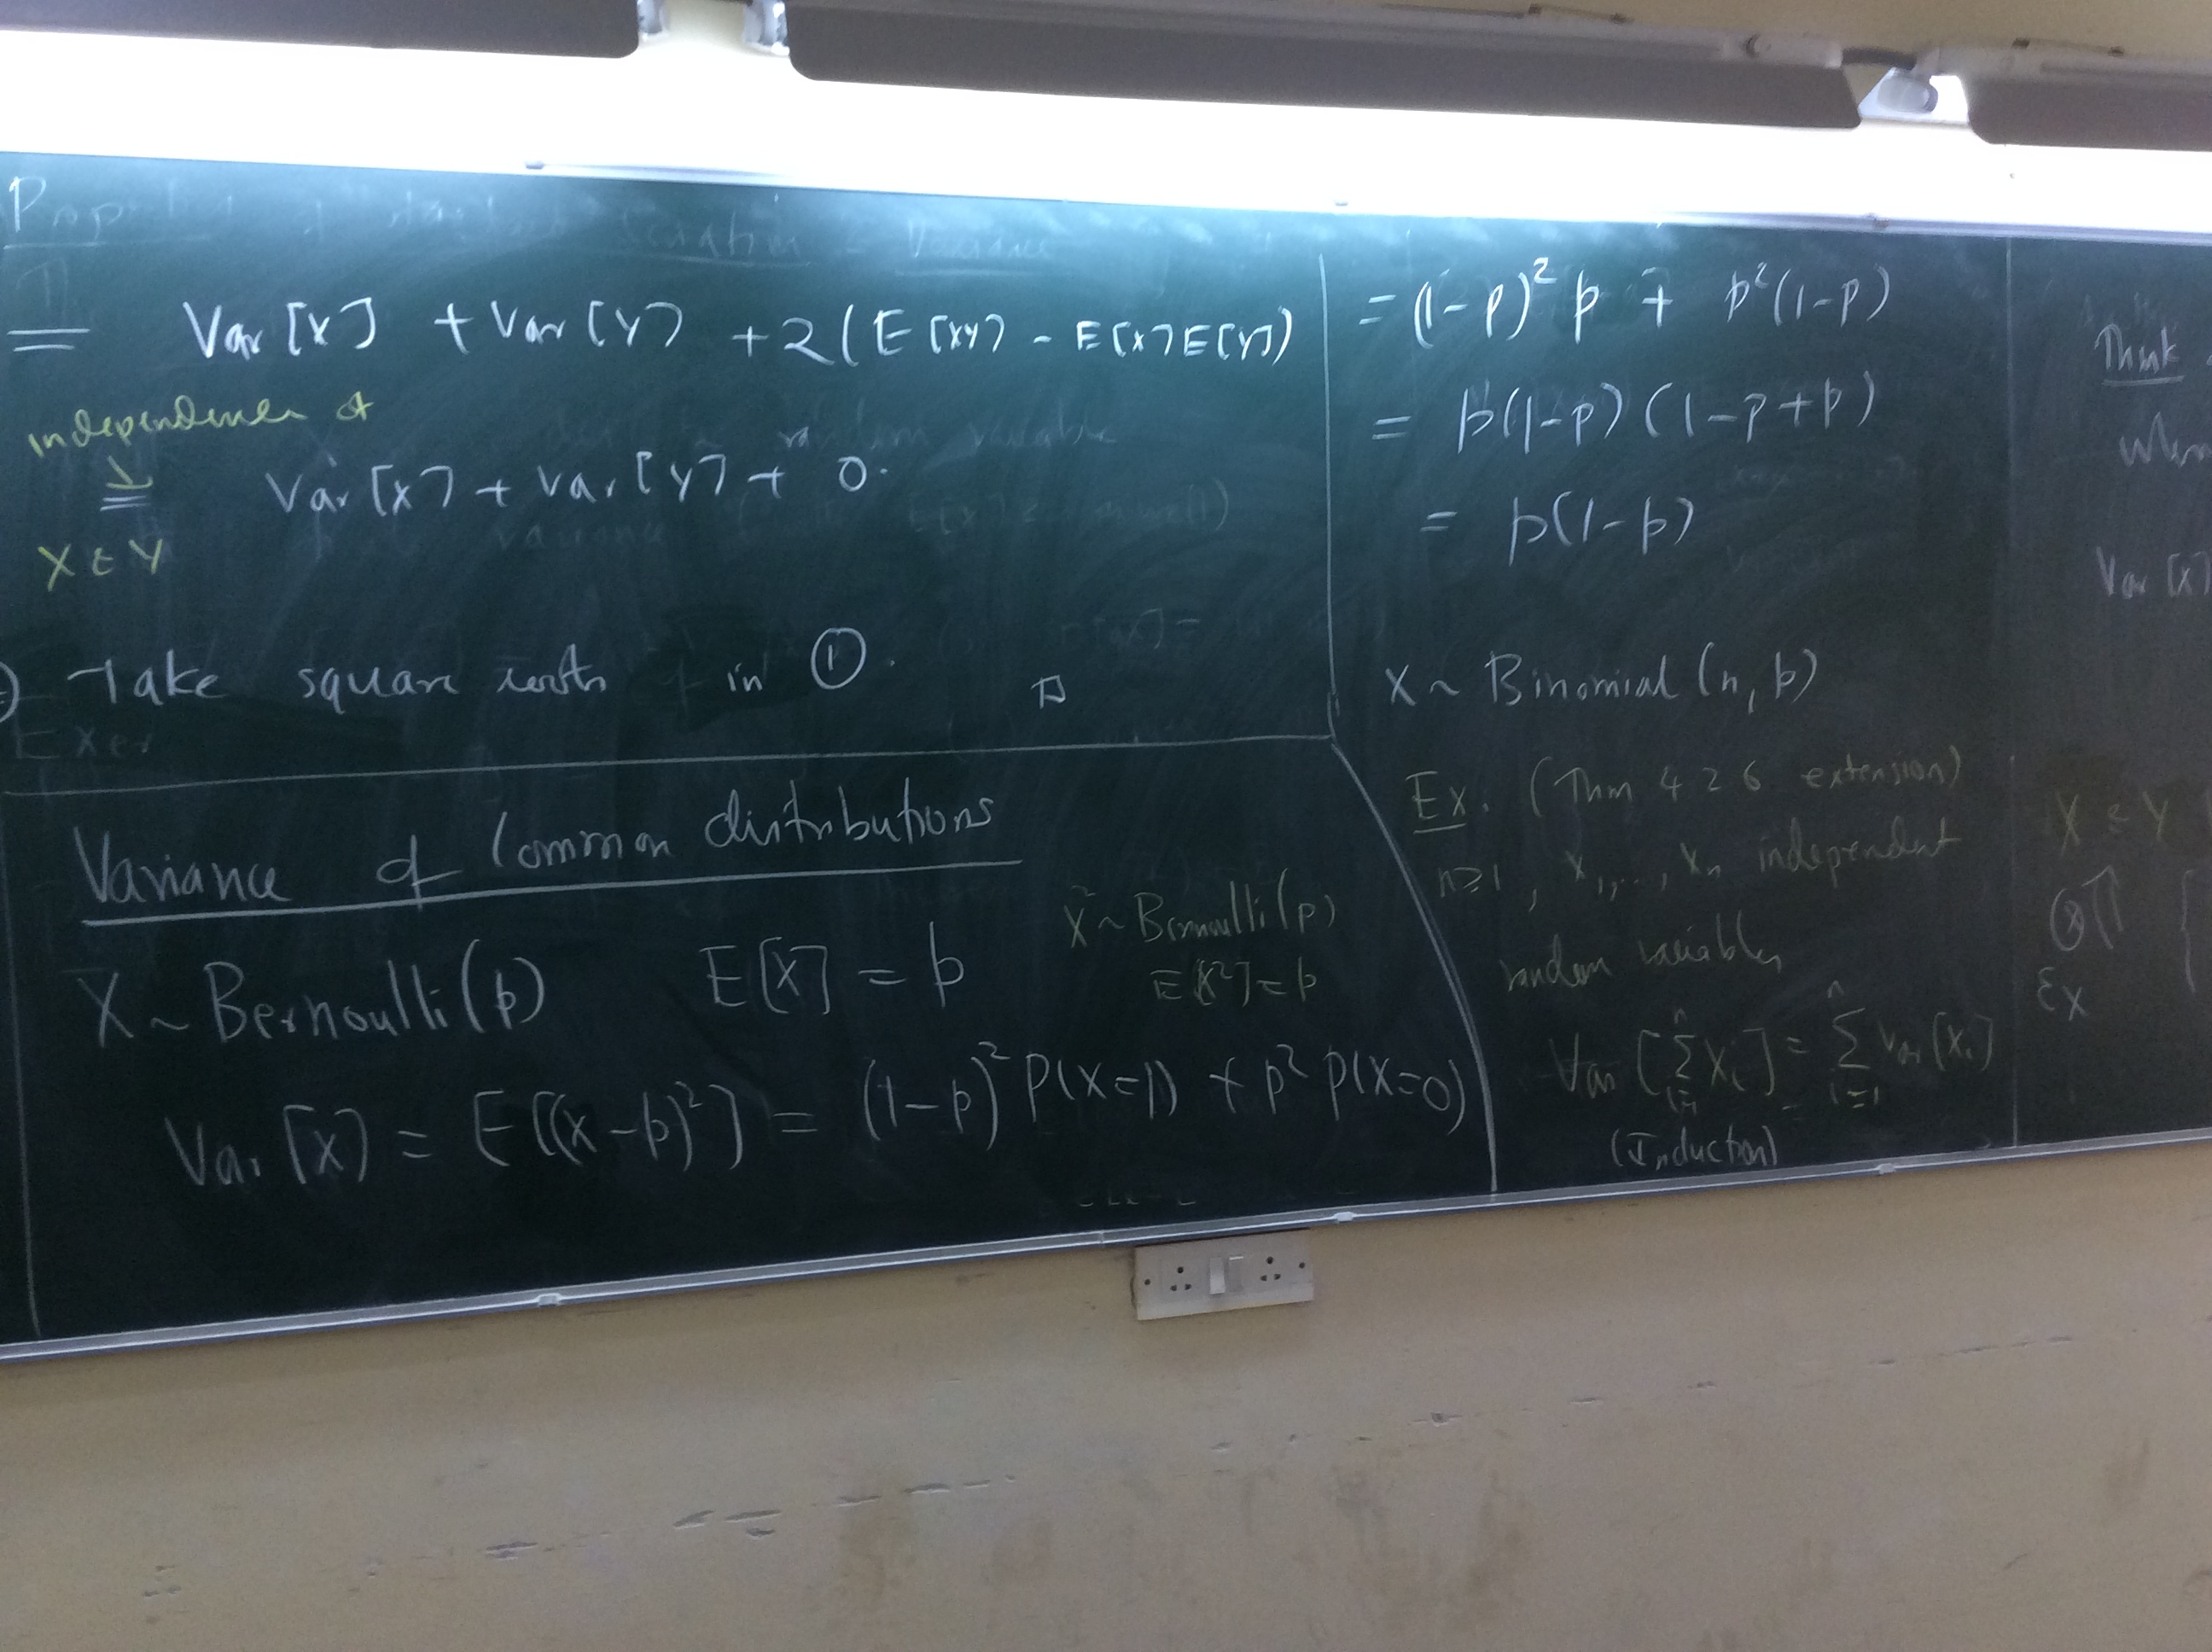 = Var [X] + Var [Y] + 2(E[XY] - E[X]E[Y])
independence of
= Var [X] + Var [Y] + 0.
X & Y
Take square roots in ①. □
Exer
Variance of Common distributions
X ~ Bernoulli(p) E[X] = p
X² ~ Bernoulli(p)
E[X²] = p
Var [X] = E[(X-p)²] = (1-p)² P(X=1) + p² P(X=0)
= (1-p)² p + p²(1-p)
= p(1-p) (1-p+p)
= p(1-p)
X ~ Binomial (n, p)
Ex. (Thm 4 2 6 extension)
n≥1, X₁,..., Xₙ independent
random variables
Var [∑ᵢ₌₁ⁿ Xᵢ] = ∑ᵢ₌₁ⁿ Var [Xᵢ]
(Induction)
Think
Var [X]
X & Y
Ex